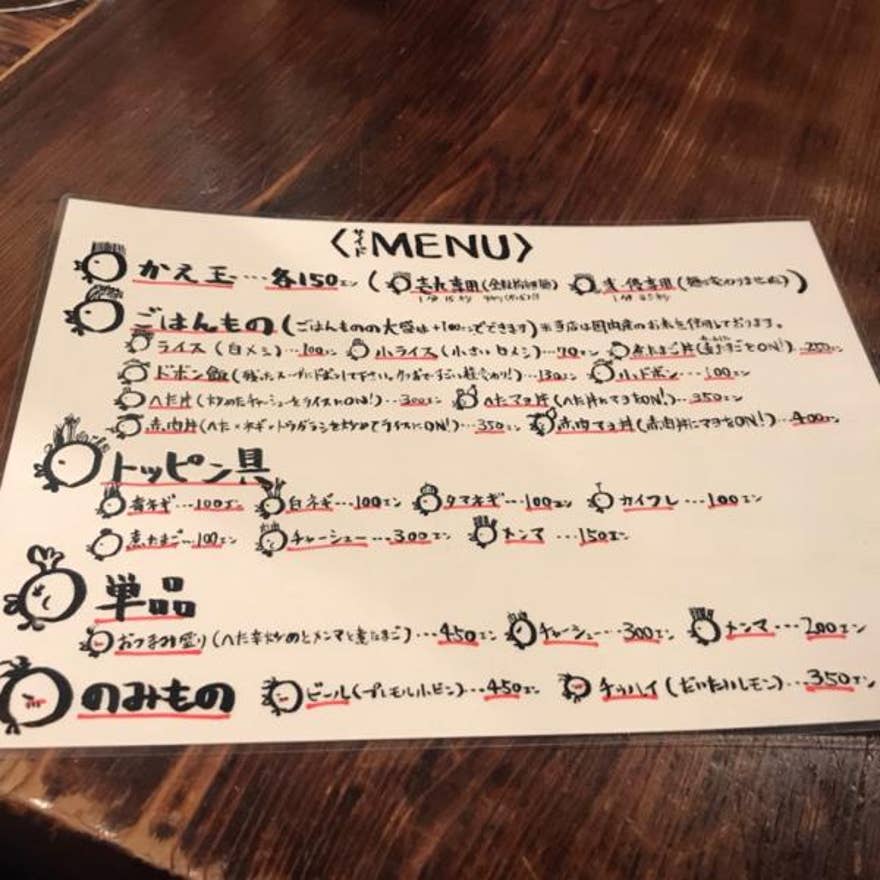 〈サイド MENU〉
かえ玉…各150エン (壱九専用(全粒粉細麺) 専用(麺は変わりません))
ごはんもの (ごはんものの大盛は+100エンでできます) ※当店は国内産のお米を使用しております。
ライス (白メシ)…100エン 小ライス (小さい白メシ)…70エン 煮たまご丼(煮たまごをON!)…250エン
ドボン飯(残ったスープにドボンして下さい。)…130エン 小ドボン…100エン
へた丼 (炒めたチャーシューをライスにON!)…300エン へたマヨ丼 (へた丼にマヨをON!)…350エン
赤肉丼(へた×ネギ×トウガラシを炒めてライスにON!)…350エン 赤肉マヨ丼 (赤肉丼にマヨをON!)…400エン
トッピン具
青ネギ…100エン 白ネギ…100エン タマネギ…100エン カイワレ…100エン
煮たまご…100エン チャーシュー…300エン メンマ…150エン
単品
おつまみ盛り (へた辛炒めとメンマと煮たまご)…450エン チャーシュー…300エン メンマ…200エン
のみもの ビール(プレモル小ビン)…450エン チューハイ (だいたいレモン)…350エン